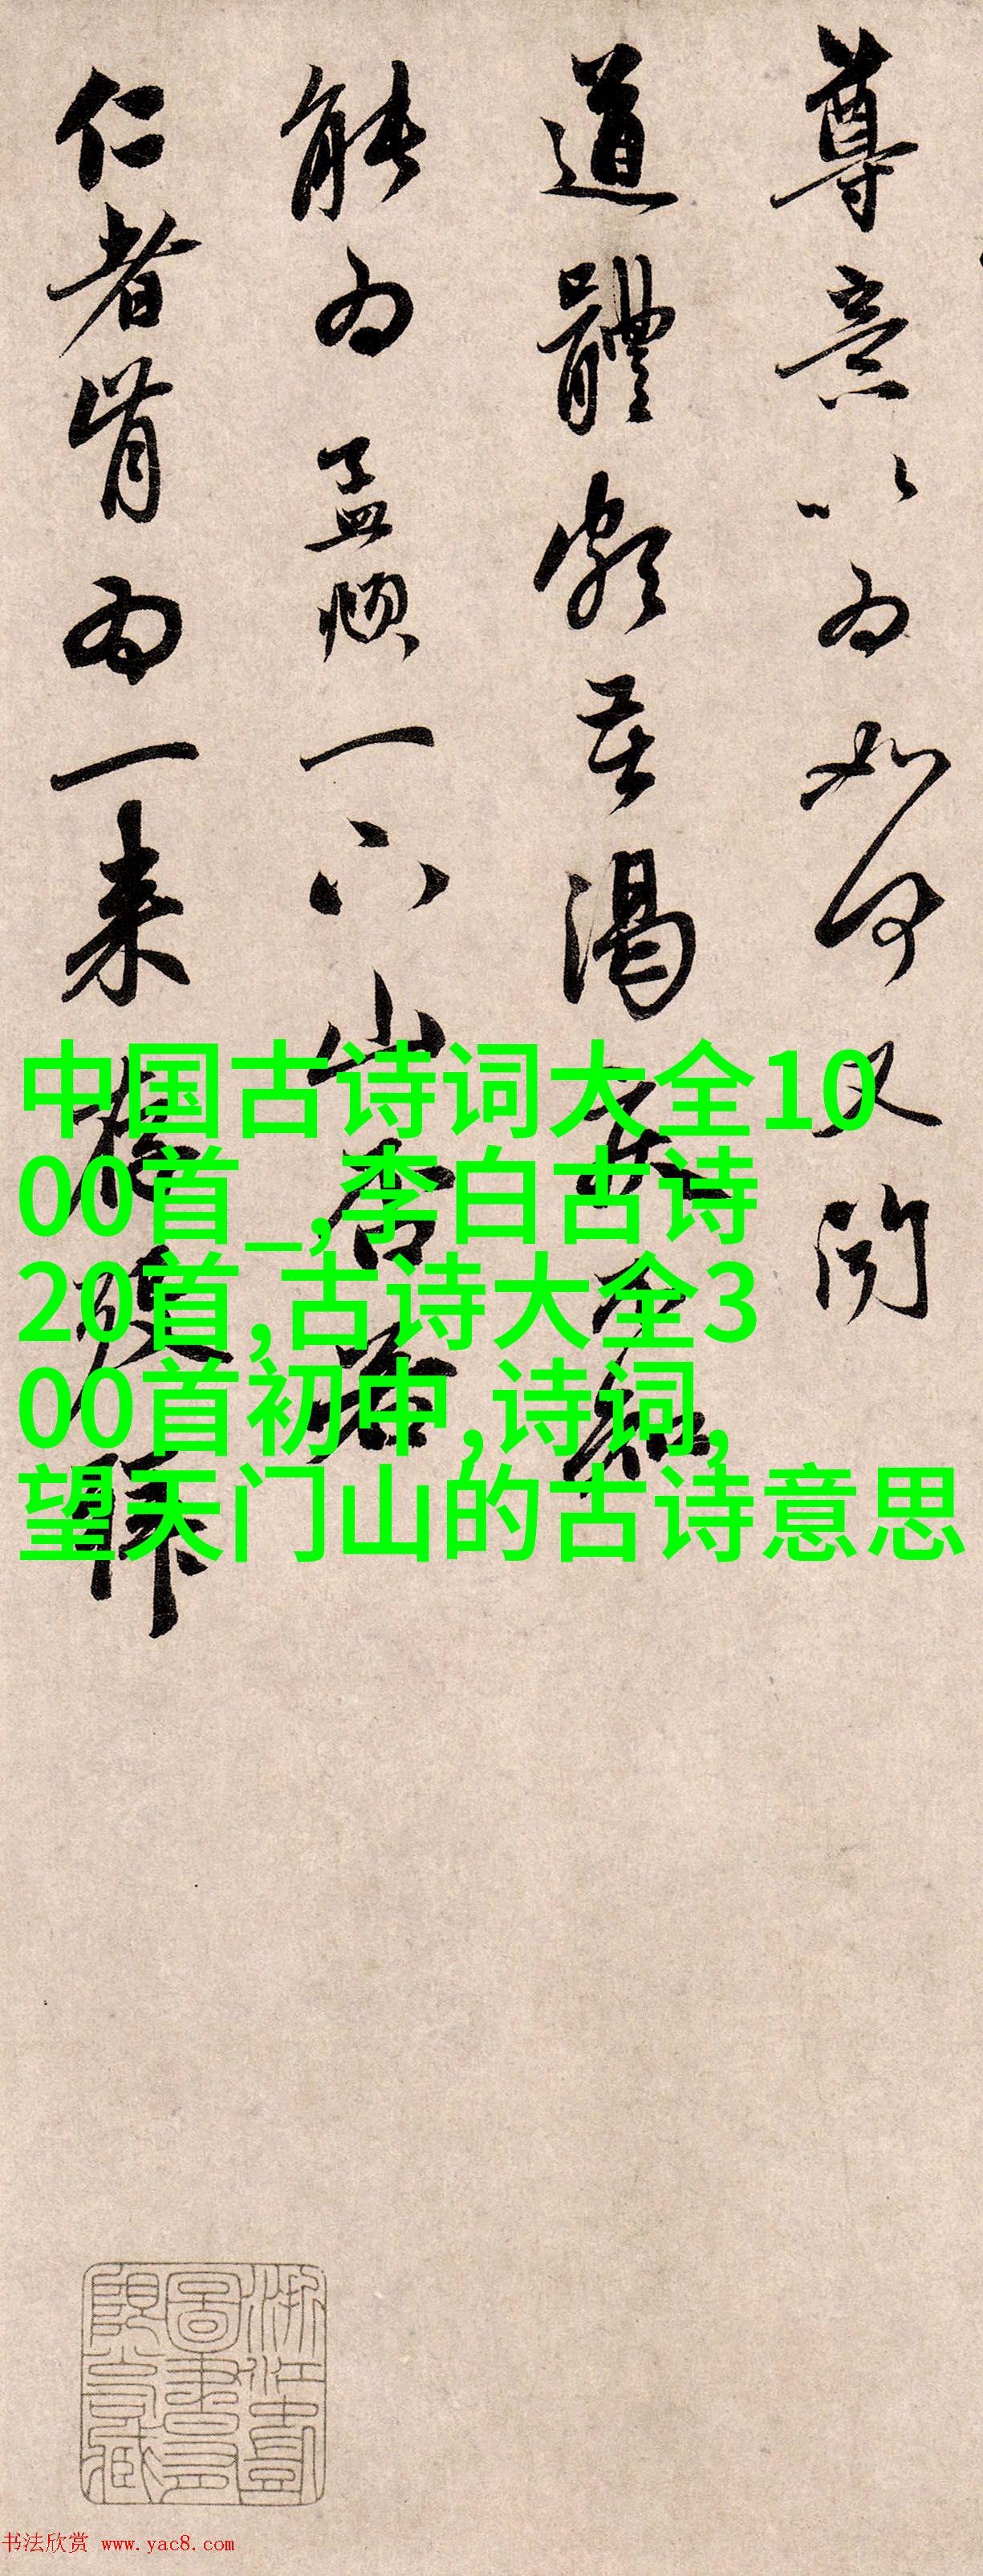 尊意以為如何又聞
道體頗苦渴
能為孟頫一下山否若
仁者肯為一來
中国古诗词大全10
00首_,李白古诗
20首,古诗大全3
00首初中,诗词,
望天门山的古诗意思
书法欣赏 www.yac8.com